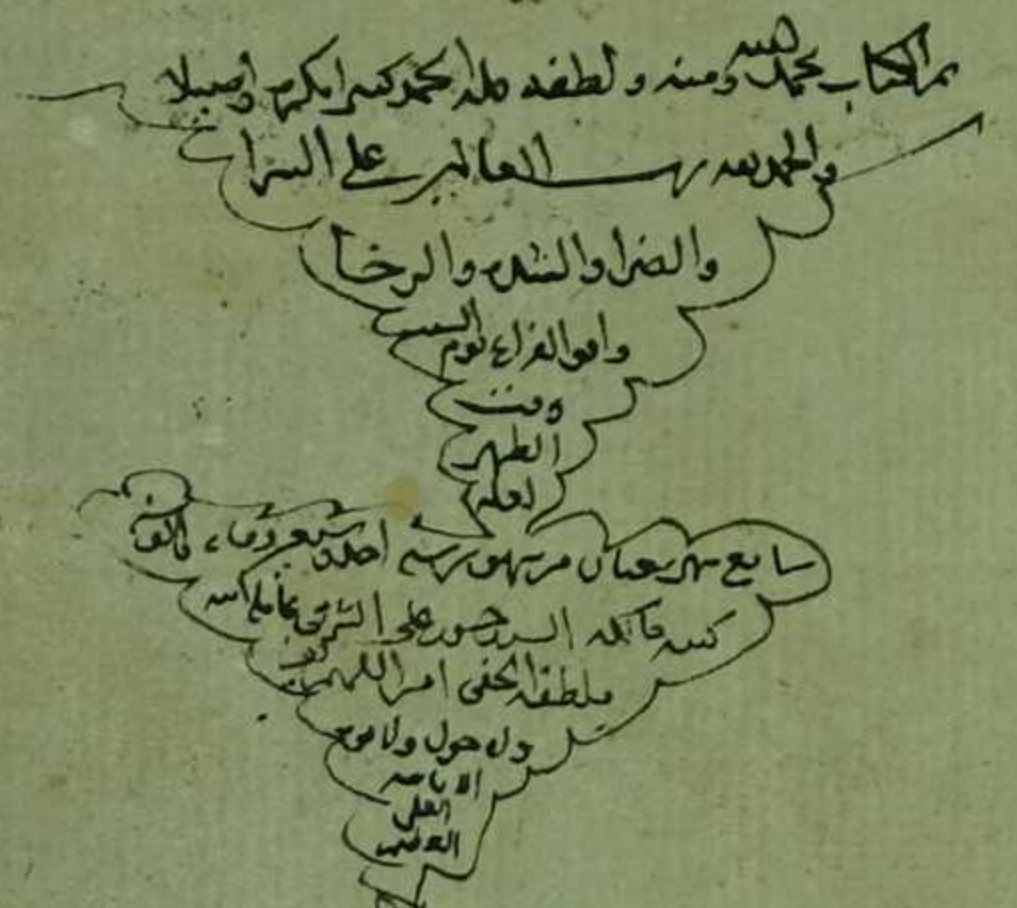 تم الكتاب بحمد الله ومنه ولطفه فله الحمد بكرة واصيلا
والحمد لله رب العالمين على السرا
والضرا والشدة والرخا
وافق الفراغ يوم السبت
وقت
الظهر
لعله
سابع شهر شعبان من شهور سنة احد وتسعين والف
كتبه السيد حسن علي الشرفي عامله الله
بلطفه الخفي امين اللهم امين
ولا حول ولا قوة
الا بالله
العلي
العظيم